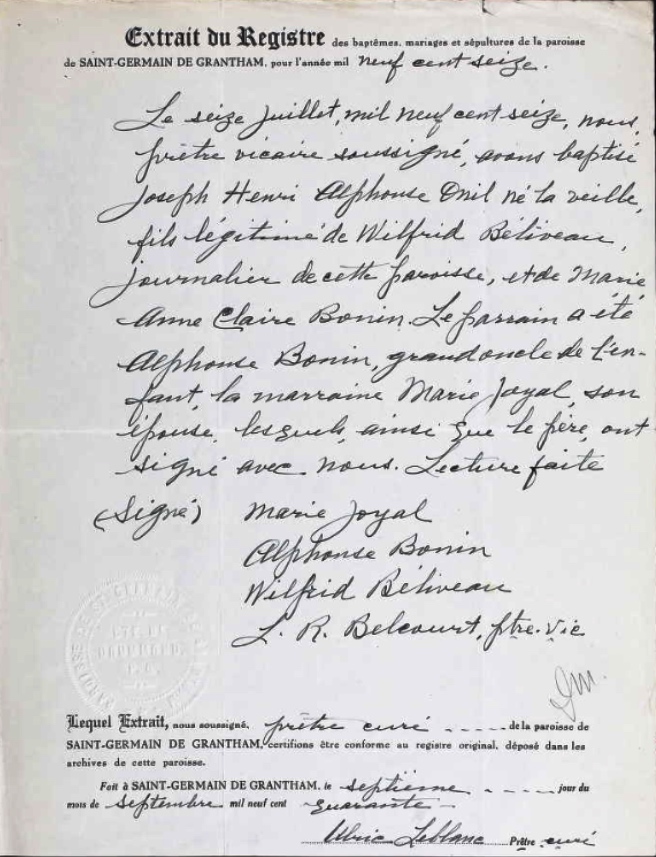 Extrait du Registre des baptêmes, mariages et sépultures de la paroisse
de SAINT-GERMAIN DE GRANTHAM, pour l'année mil neuf cent seize.
Le seize juillet, mil neuf cent seize, nous,
prêtre vicaire soussigné, avons baptisé
Joseph Henri Alphonse Onil né la veille,
fils légitime de Wilfrid Béliveau,
journalier de cette paroisse, et de Marie
Anne Claire Bonin. Le parrain a été
Alphonse Bonin, grand oncle de l'en-
fant, la marraine Marie Joyal, son
épouse, lesquels, ainsi que le père, ont
signé avec nous. Lecture faite
(Signé) Marie Joyal
Alphonse Bonin
Wilfrid Béliveau
L. R. Belcourt, ptre-vic
Lequel Extrait, nous soussigné, prêtre curé de la paroisse de
SAINT-GERMAIN DE GRANTHAM, certifions être conforme au registre original, déposé dans les
archives de cette paroisse.
Fait à SAINT-GERMAIN DE GRANTHAM, le septième jour du
mois de Septembre mil neuf cent quarante
Ulric Leblanc Prêtre curé